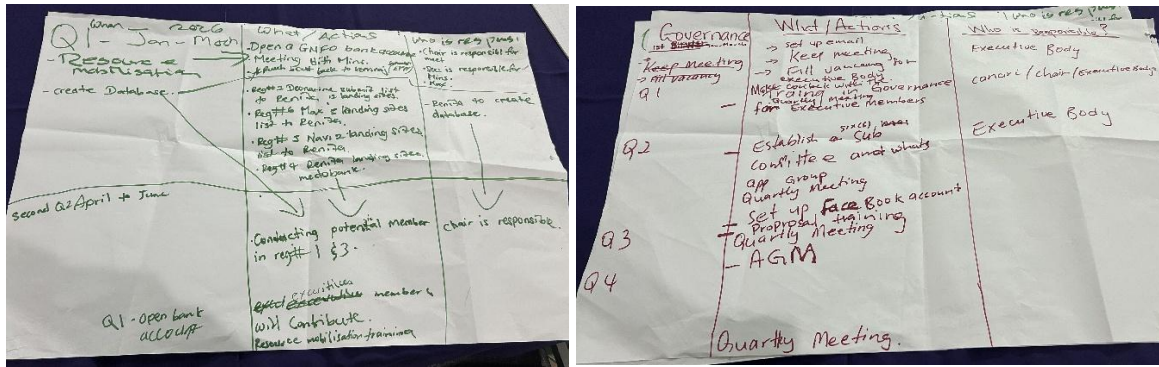 When 2026
Q1 - Jan - Mach
- Resource
mobilisation
- create Database.
What / Actions
- Open a GNFO bank account
- Meeting with Mins.
list to Renita, landing sites.
- Reg# 6 Max 2 landing sites
list to Renita.
- Reg# 5 Navi 2 landing sites
list to Renita
- Reg# 4 Renita landing sites
Who is respons.
- Chair is responsible for
meet
- Sec is responsible for
Mins.
Renita to create
database.
second Q2 April to June
- Conducting potential member
in reg# 1 & 3.
executives
members
will contribute.
Resource mobilisation training
chair is responsible.
Q1 - open bank
account
Governance
- Keep Meeting
- Fill vacancy
Q1
Q2
Q3
Q4
What / Actions
→ set up email
→ Keep meeting
→ Fill vacancy for
executive Body
in Governance
Quartly Meeting
for Executive Members
six(6)
- Establish a Sub
committee and whats
app Group
Quartly Meeting
- Set up Face Book account
- Proprosal training
Quartly Meeting
- AGM
Quartly Meeting.
Who is responsible?
Executive Body
/chair/executive Body
Executive Body